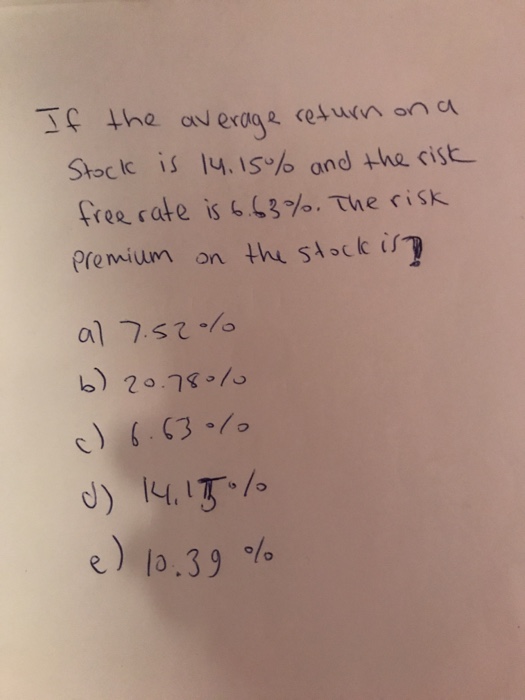 If the average return on a
Stock is 14.15% and the risk
free rate is 6.63%. The risk
premium on the stock is?
a) 7.52%
b) 20.78%
c) 6.63%
d) 14.15%
e) 10.39%